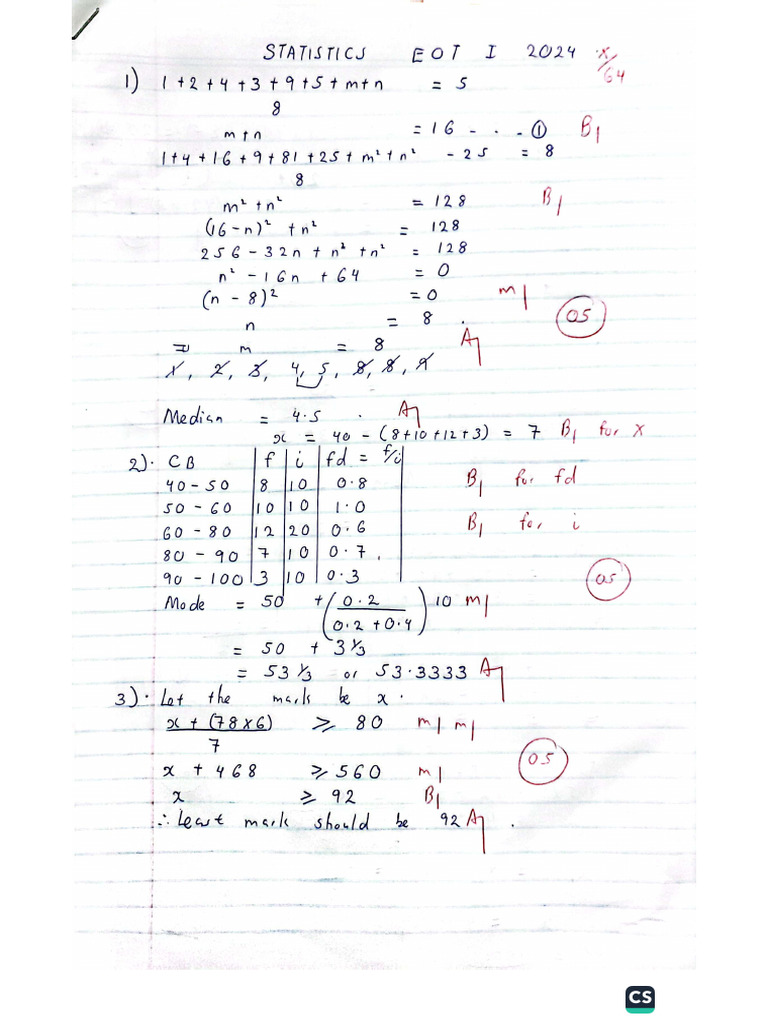 STATISTICS EOT I 2024 x/64
1) 1 + 2 + 4 + 3 + 9 + 5 + m + n = 5
8
m + n = 16 - - - ① B1
1 + 4 + 16 + 9 + 81 + 25 + m² + n² - 25 = 8
8
m² + n² = 128 B1
(16 - n)² + n² = 128
256 - 32n + n² + n² = 128
n² - 16n + 64 = 0
(n - 8)² = 0 m1
n = 8 . 05
⇒ m = 8 A1
1, 2, 3, 4, 5, 8, 8, 9
Median = 4.5 . A1
x = 40 - (8 + 10 + 12 + 3) = 7 B1 for x
2). CB f i fd = f/i
40 - 50 8 10 0.8 B1 for fd
50 - 60 10 10 1.0
60 - 80 12 20 0.6 B1 for i
80 - 90 7 10 0.7
90 - 100 3 10 0.3 05
Mode = 50 + (0.2 / 0.2 + 0.4) 10 m1
= 50 + 3 1/3
= 53 1/3 or 53.3333 A1
3). Let the mark be x .
x + (78 x 6) ≥ 80 m1 m1
7
x + 468 ≥ 560 m1 05
x ≥ 92 B1
∴ Least mark should be 92 A1 .
CS